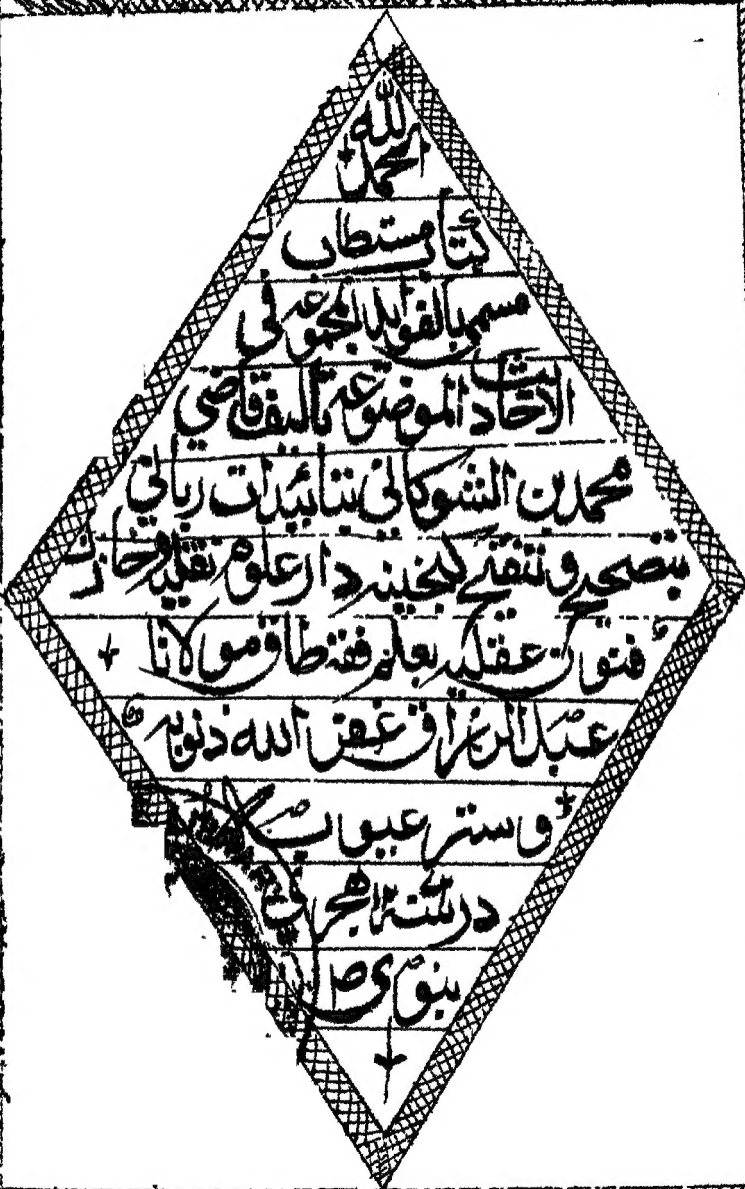 الحمد لله
کتاب مستطاب
مسمی بالفوائد المجموعه فی
الاحادیث الموضوعه تالیف قاضی
محمد بن الشوکانی بتائیدات ربانی
بتصحیح و تنقیح گنجینه دار علوم نقلیه و خازن
فنون عقلیه بعلم فقه طاق مولانا
عبد الرزاق غفر الله ذنوبه
و ستر عیوبه
در هجری
نبوی ص